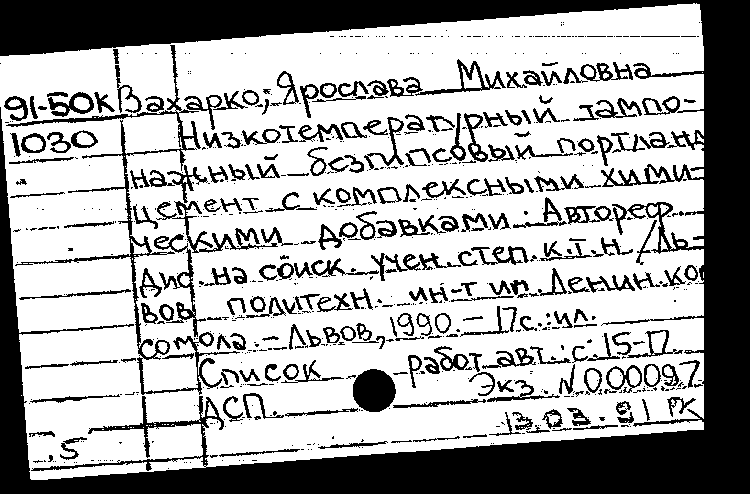 91-50К Захарко; Ярослава Михайловна
1030 Низкотемпературный тампо-
нажный безгипсовый портланд
цемент с комплексными хими-
ческими добавками: Автореф.
Дис. на соиск. учен. степ. к.т.н / Ль-
вов. политехн. ин-т им. Ленин. ком
сомола. - Львов, 1990. - 17с.: ил.
Список работ авт.: с. 15-17
ДСП. Экз. N 000097
13.03.91 РК
.5